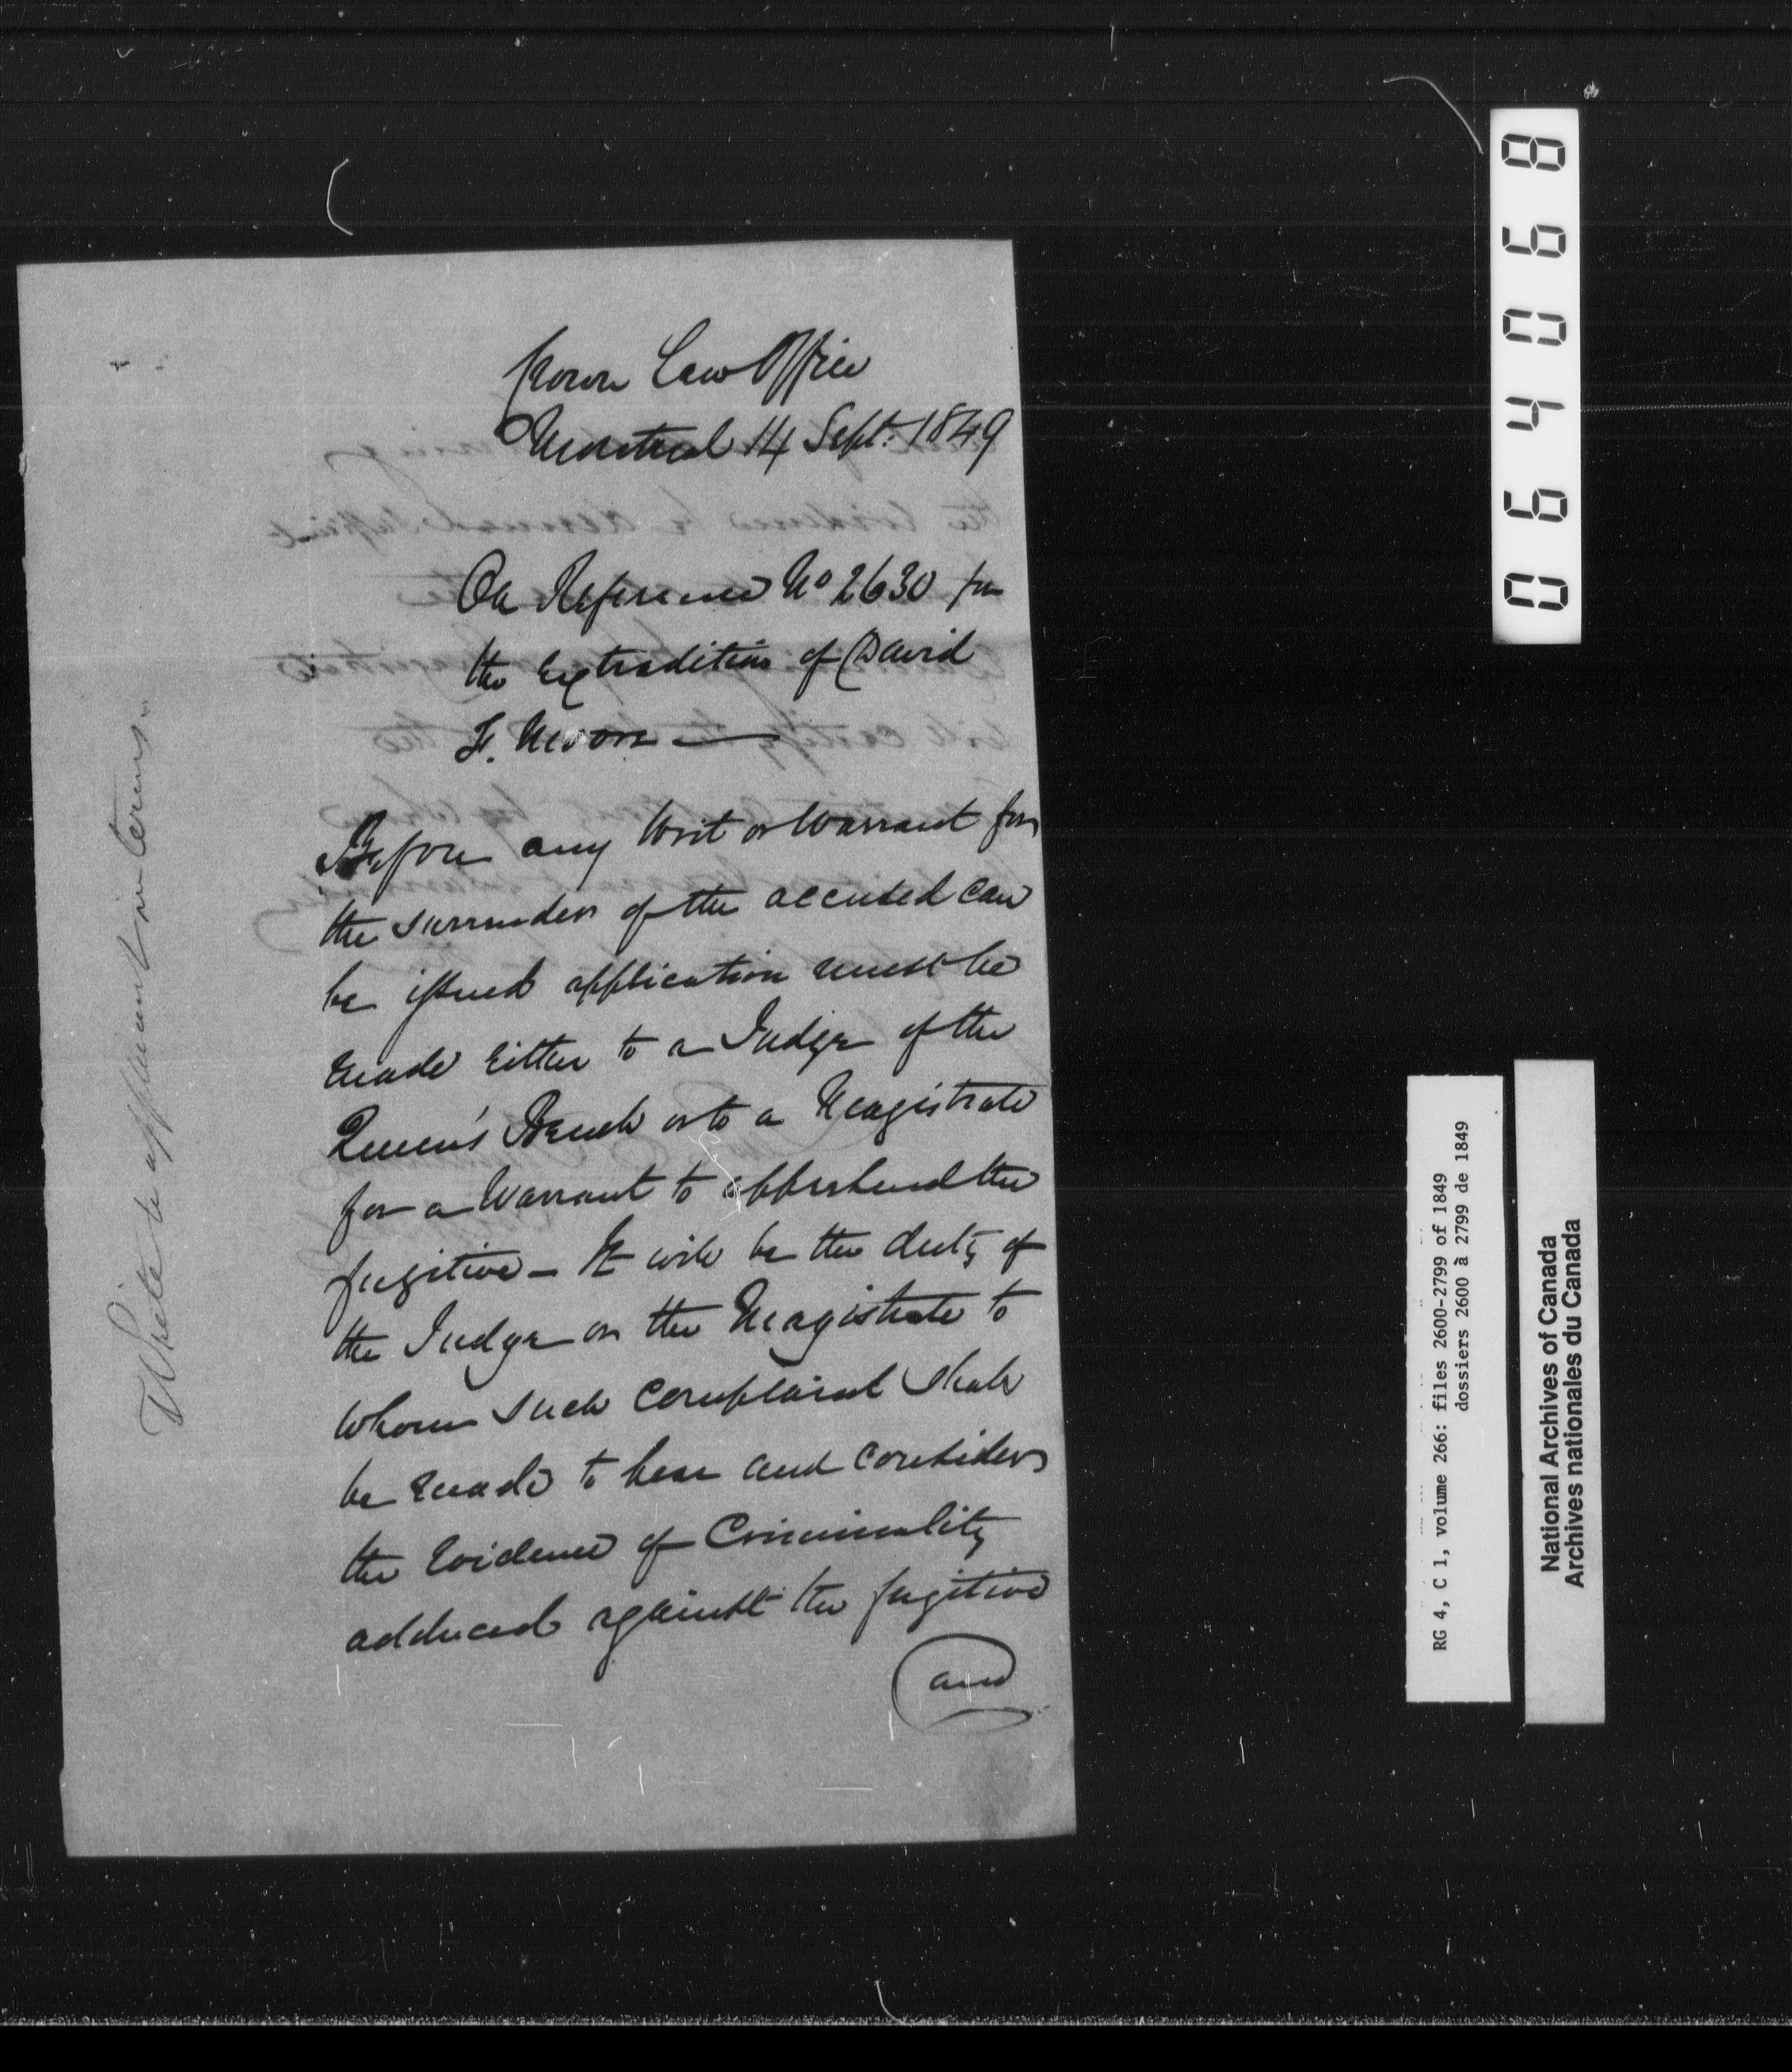 Crown Law Office
Montreal 14 Sept. 1849
On Reference No 2630 for
the Extradition of David
F. Moore —
Before any Writ or Warrant for
the surrender of the accused can
be issued application must be
made either to a Judge of the
Queen's Bench or to a Magistrate
for a Warrant to apprehend the
fugitive — It will be the duty of
the Judge or the Magistrate to
whom such complaint shall
be made to hear and consider
the Evidence of Criminality
adduced against the fugitive
and
Write to applicant in terms.
064068
RG 4, C 1, volume 266: files 2600-2799 of 1849
dossiers 2600 à 2799 de 1849
National Archives of Canada
Archives nationales du Canada